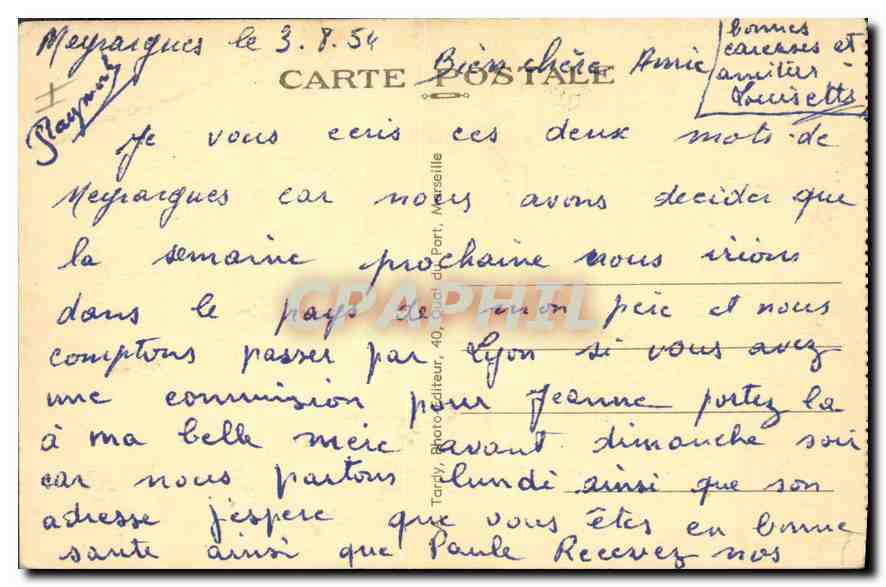 Meyrargues le 3.8.54
Bien chère Amie
CARTE POSTALE
Je vous ecris ces deux mots de
Meyrargues car nous avons decider que
la semaine prochaine nous irions
dans le pays de mon père et nous
comptons passer par Lyon si vous avez
une commission pour Jeanne portez la
à ma belle mère avant dimanche soir
car nous partons lundi ainsi que son
adresse j'espere que vous êtes en bonne
sante ainsi que Paule Recevez nos
bonnes
caresses et
amitiés
Louisette
Raymond
Tardy, Photo-Editeur, 40, Quai du Port, Marseille
CPAPHIL